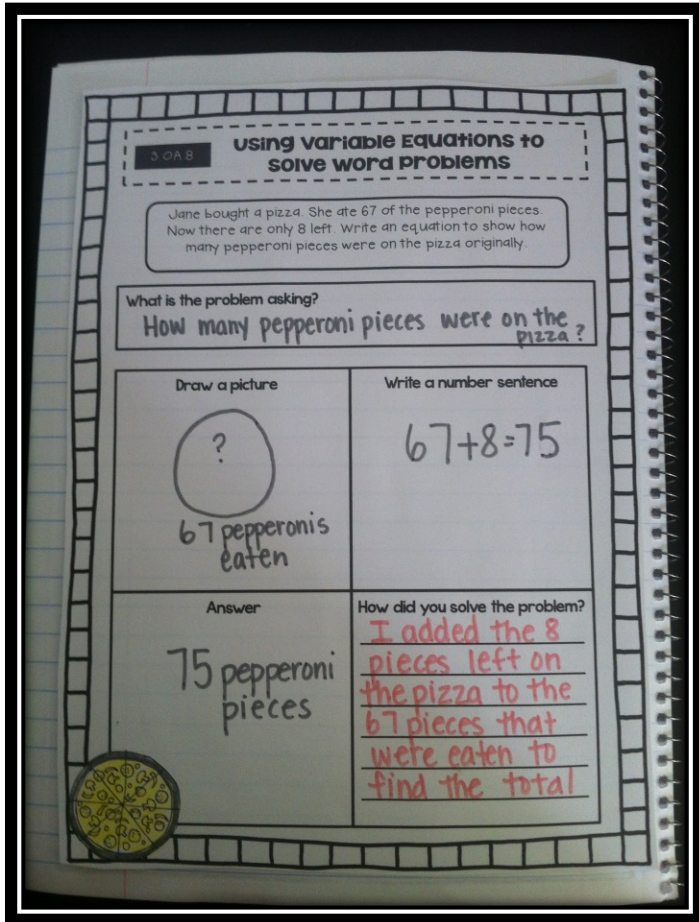 3.OA.8
Using Variable Equations to
Solve Word Problems
Jane bought a pizza. She ate 67 of the pepperoni pieces.
Now there are only 8 left. Write an equation to show how
many pepperoni pieces were on the pizza originally.
What is the problem asking?
How many pepperoni pieces were on the
pizza?
Draw a picture
?
67 pepperonis
eaten
Write a number sentence
67+8=75
Answer
75 pepperoni
pieces
How did you solve the problem?
I added the 8
pieces left on
the pizza to the
67 pieces that
were eaten to
find the total